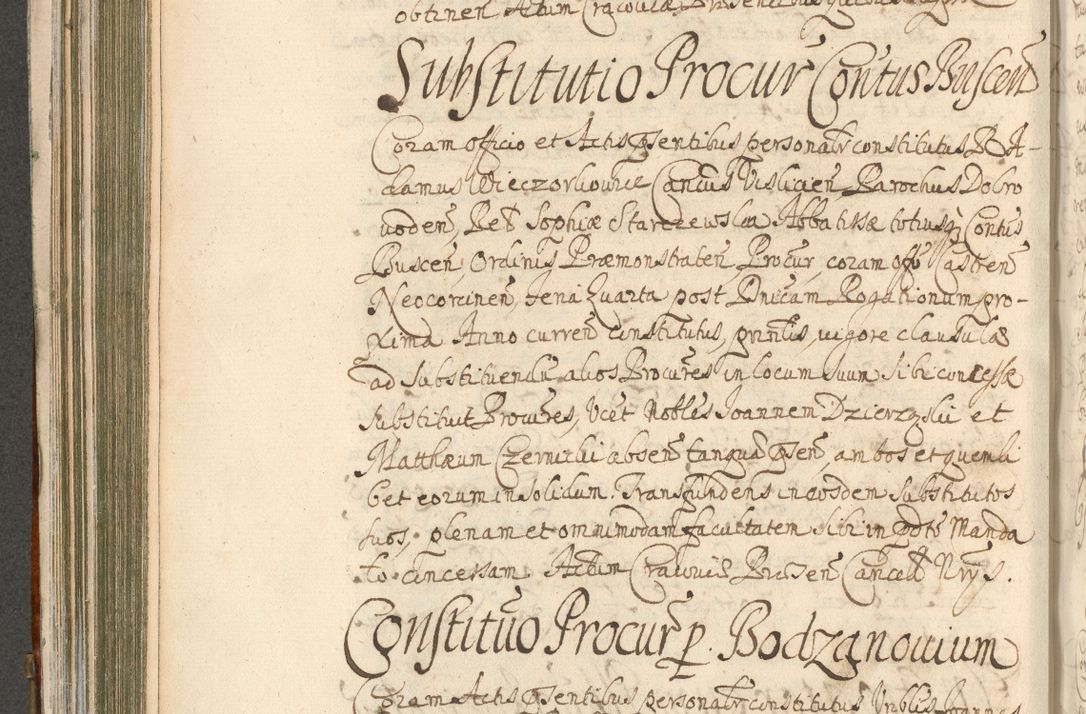 obtinen Actum Cracoviæ
Substitutio Procur Contus Buscen
Coram officio et Actis psentibus personalr constitutus R A-
damus Wieczorkowicz Cancus Vislicien Parochus Dobro
voden, Rel Sophiæ Starczewska Abbatissæ totiusq Contus
Buscen, Ordinis Præmonstraten Procur, coram offo Castren
Neocorcinen, feria Quarta post Dnicam Rogationum pro-
xima Anno curren constitutus, vigore clausulæ
ad substituendu alios Procures in locum suum sibi concessæ
substituit Procures, Vcet Nobles Joannem Dzierzgski et
Matthæum Czernicki absen tanqua psen, ambos et quemli
bet eorum in solidum. Transfundens in eosdem substitutos
suos, plenam et omnimodam facultatem sibi in pdto Manda
to concessam Actum Cracoviæ Pntibus
Constituo Procur p. Bodzanovium
Coram Actis psentibus personalr constitutus Joannes